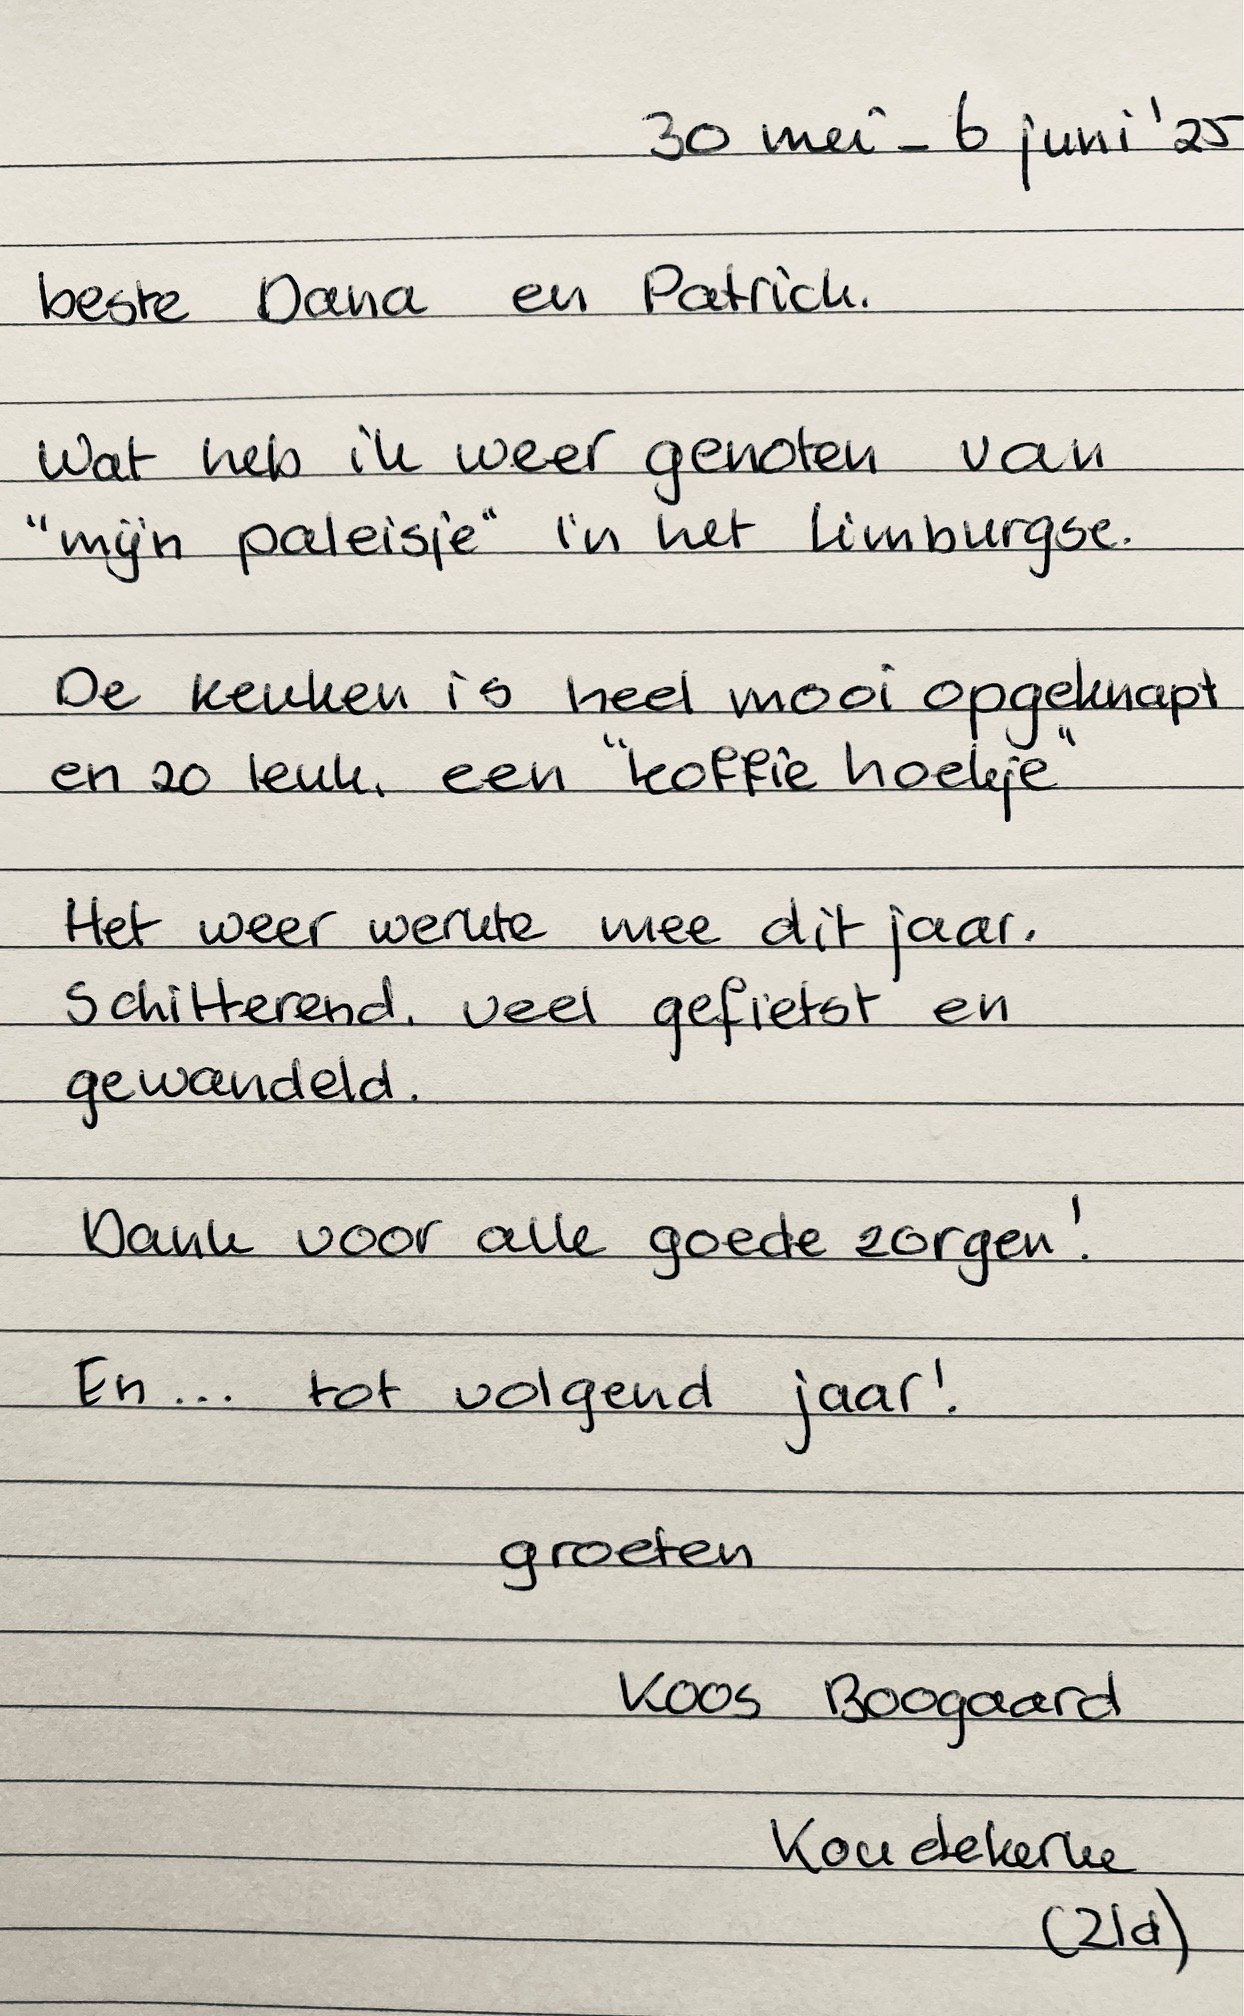 30 mei - 6 juni '25
beste Dana en Patrick.
Wat heb ik weer genoten van
"mijn paleisje" in het Limburgse.
De keuken is heel mooi opgeknapt
en zo leuk. een "koffie hoekje"
Het weer werkte mee dit jaar.
Schitterend. veel gefietst en
gewandeld.
Dank voor alle goede zorgen!
En... tot volgend jaar!
groeten
Koos Boogaard
Koudekerke
(Zld)